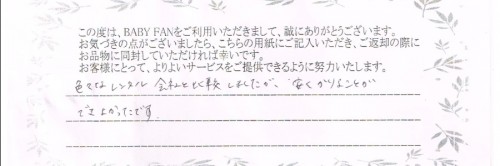 この度は、BABY FANをご利用いただきまして、誠にありがとうございます。
お気づきの点がございましたら、こちらの用紙にご記入いただき、ご返却の際に
お品物に同封していただければ幸いです。
お客様にとって、よりよいサービスをご提供できるように努力いたします。
色々なレンタル会社と比較しましたが、安くかりることが
できよかったです。